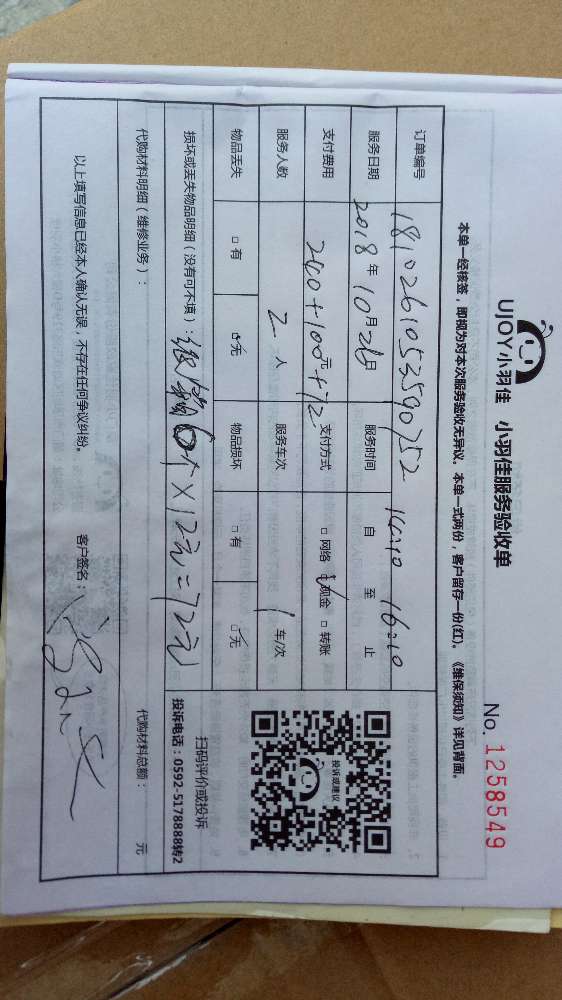 UJOY小羽佳 小羽佳服务验收单
No. 1258549
本单一经核签，即视为对本次服务验收无异议。本单一式两份，客户留存一份(红)。《维保须知》详见背面。
订单编号 1810261053590752
服务日期 2018年10月26日 服务时间 14:10 自 至 16:10 止
支付费用 240+100元+72 支付方式 □网络 □现金 □转账
服务人数 2人 服务车次 1车/次
物品丢失 □有 □无 物品损坏 □有 □无
损坏或丢失物品明细（没有可不填）： 6个×12元=72元
投诉或建议
扫码评价或投诉
投诉电话：0592-5178888转2
代购材料明细（维修业务）： 代购材料总额： 元
以上填写信息已经本人确认无误，不存在任何争议纠纷。 客户签名：